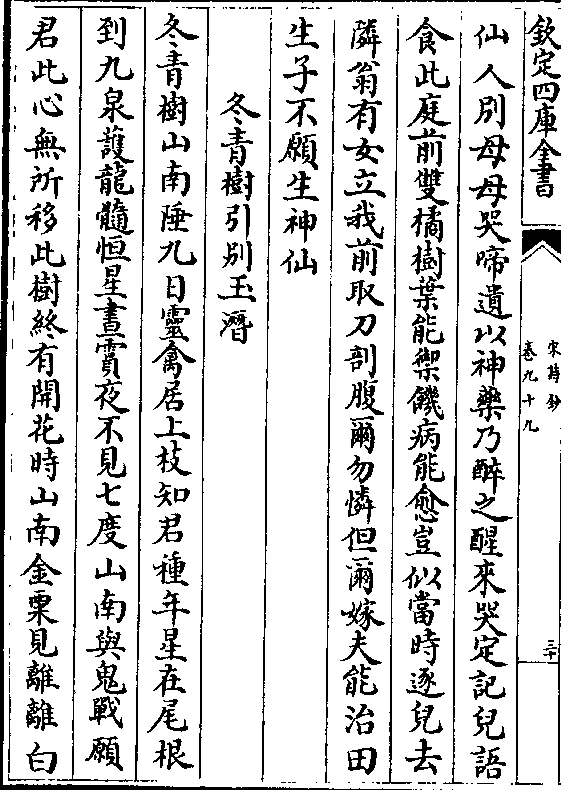 欽定四庫全書
宋詩鈔
卷九十九
三十
仙人別母母哭啼遺以神藥乃醉之醒來哭定記兒語
食此庭前雙橘樹葉能禦饑病能愈豈似當時逐兒去
隣翁有女立我前取刀剖腹爾勿憐但爾嫁夫能治田
生子不願生神仙
冬青樹引別玉潛
冬青樹山南陲九日靈禽居上枝知君種年星在尾根
到九泉護龍髓恒星晝霣夜不見七度山南與鬼戰願
君此心無所移此樹終有開花時山南金粟見離離白